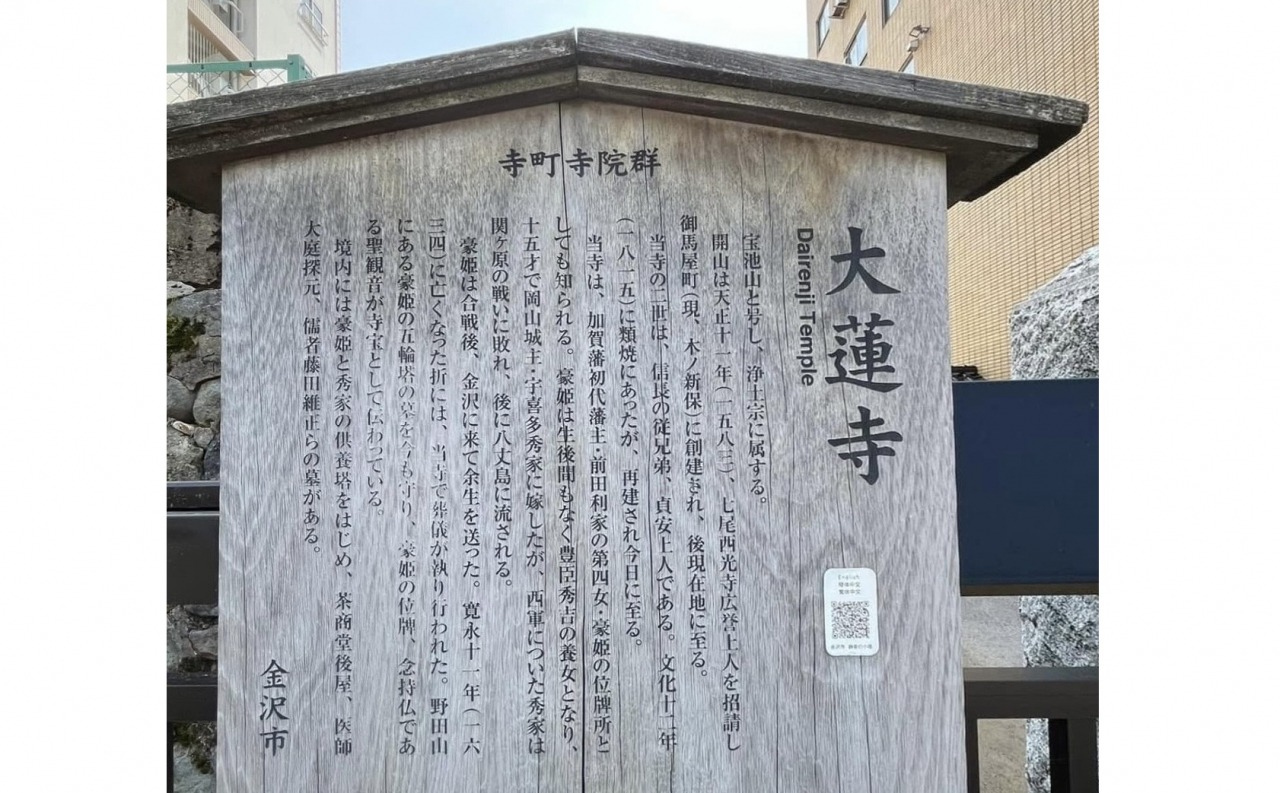 寺町寺院群
大蓮寺
Dairenji Temple
宝池山と号し、浄土宗に属する。
開山は天正十一年(一五八三)、七尾西光寺広誉上人を招請し
御馬屋町(現、木ノ新保)に創建され、後現在地に至る。
当寺の二世は、信長の従兄弟、貞安上人である。文化十二年
(一八一五)に類焼にあったが、再建され今日に至る。
当寺は、加賀藩初代藩主・前田利家の第四女・豪姫の位牌所と
しても知られる。豪姫は生後間もなく豊臣秀吉の養女となり、
十五才で岡山城主・宇喜多秀家に嫁したが、西軍についた秀家は
関ヶ原の戦いに敗れ、後に八丈島に流される。
豪姫は合戦後、金沢に来て余生を送った。寛永十一年(一六
三四)に亡くなった折には、当寺で葬儀が執り行われた。野田山
にある豪姫の五輪塔の墓を今も守り、豪姫の位牌、念持仏であ
る聖観音が寺宝として伝わっている。
境内には豪姫と秀家の供養塔をはじめ、茶商堂後屋、医師
大庭探元、儒者藤田維正らの墓がある。
金沢市
English
簡体中文
繁体中文